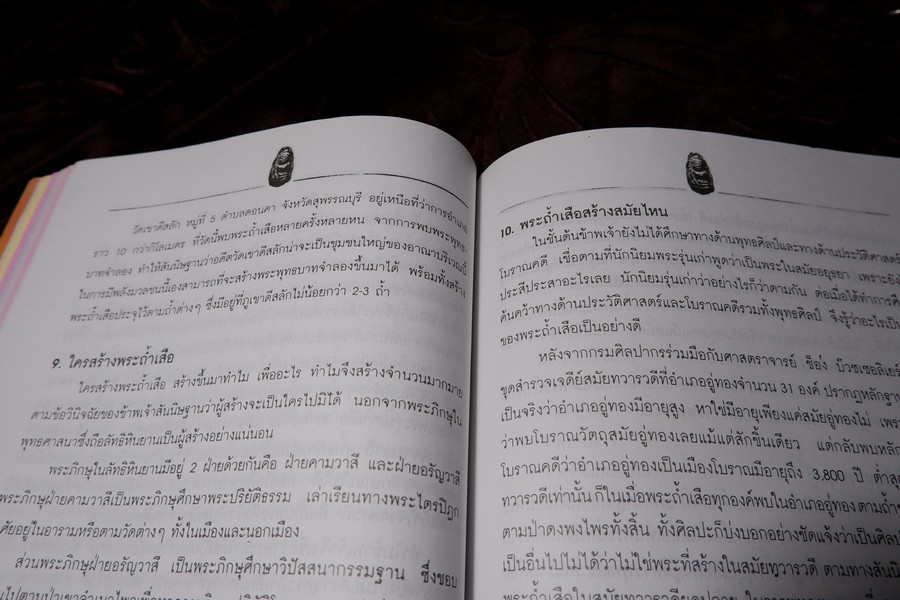 วัดเขาดีสลัก หมู่ที่ 5 ตำบลดอนคา จังหวัดสุพรรณบุรี อยู่เหนือที่ว่าการอำเภอ
ราว 10 กว่ากิโลเมตร ที่วัดนี้พบพระถ้ำเสือหลายครั้งหลายหน จากการพบพระพุทธ
บาทจำลอง ทำให้สันนิษฐานว่าอดีตวัดเขาดีสลักน่าจะเป็นชุมชนใหญ่ของอาณาบริเวณนี้
ในการมีพลังมวลชนนี้เองสามารถที่จะสร้างพระพุทธบาทจำลองขึ้นมาได้ พร้อมทั้งสร้าง
พระถ้ำเสือประจุไว้ตามถ้ำต่างๆ ซึ่งมีอยู่ที่ภูเขาดีสลักไม่น้อยกว่า 2-3 ถ้ำ
9. ใครสร้างพระถ้ำเสือ
ใครสร้างพระถ้ำเสือ สร้างขึ้นมาทำไม เพื่ออะไร ทำไมจึงสร้างจำนวนมากมาย
ตามข้อวินิจฉัยของข้าพเจ้าสันนิษฐานว่าผู้สร้างจะเป็นใครไปมิได้ นอกจากพระภิกษุใน
พุทธศาสนาซึ่งถือลัทธิหินยานเป็นผู้สร้างอย่างแน่นอน
พระภิกษุในลัทธิหินยานมีอยู่ 2 ฝ่ายด้วยกันคือ ฝ่ายคามวาสี และฝ่ายอรัญวาสี
พระภิกษุฝ่ายคามวาสีเป็นพระภิกษุศึกษาพระปริยัติธรรม เล่าเรียนทางพระไตรปิฎก
ศัยอยู่ในอารามหรือตามวัดต่างๆ ทั้งในเมืองและนอกเมือง
ส่วนพระภิกษุฝ่ายอรัญวาสี เป็นพระภิกษุศึกษาวิปัสสนากรรมฐาน ซึ่งชอบ
10. พระถ้ำเสือสร้างสมัยไหน
ในขั้นต้นข้าพเจ้ายังไม่ได้ศึกษาทางด้านพุทธศิลป์และทางด้านประวัติศาสตร์
โบราณคดี เชื่อตามที่นักนิยมพระรุ่นเก่าพูดว่าเป็นพระในสมัยอยุธยา เพราะยัง
ประสีประสาอะไรเลย นักนิยมรุ่นเก่าว่าอย่างไรก็ว่าตามกัน ต่อเมื่อได้ทำการศึ
ค้นคว้าทางด้านประวัติศาสตร์และโบราณคดีรวมทั้งพุทธศิลป์ จึงรู้ว่าอะไรเป็น
ของพระถ้ำเสือเป็นอย่างดี
หลังจากกรมศิลปากรร่วมมือกับศาสตราจารย์ ช็อง บ๊วซเซอลิเยร์
ขุดสำรวจเจดีย์สมัยทวารวดีที่อำเภออู่ทองจำนวน 31 องค์ ปรากฏหลักฐาน
เป็นจริงว่าอำเภออู่ทองมีอายุสูง หาใช่มีอายุเพียงแค่สมัยอู่ทองไม่ เพร
ว่าพบโบราณวัตถุสมัยอู่ทองเลยแม้แต่สักชิ้นเดียว แต่กลับพบหลัก
โบราณคดีว่าอำเภออู่ทองเป็นเมืองโบราณมีอายุถึง 3,800 ปี ต่ำสุด
ทวารวดีเท่านั้น ก็ในเมื่อพระถ้ำเสือทุกองค์พบในอำเภออู่ทอง ตามถ้ำ
ตามป่าดงพงไพรทั้งสิ้น ทั้งศิลปะก็บ่งบอกอย่างชัดแจ้งว่าเป็นศิลป
เป็นอื่นไปไม่ได้ว่าไม่ใช่พระที่สร้างในสมัยทวารวดี ตามทางสันนิ